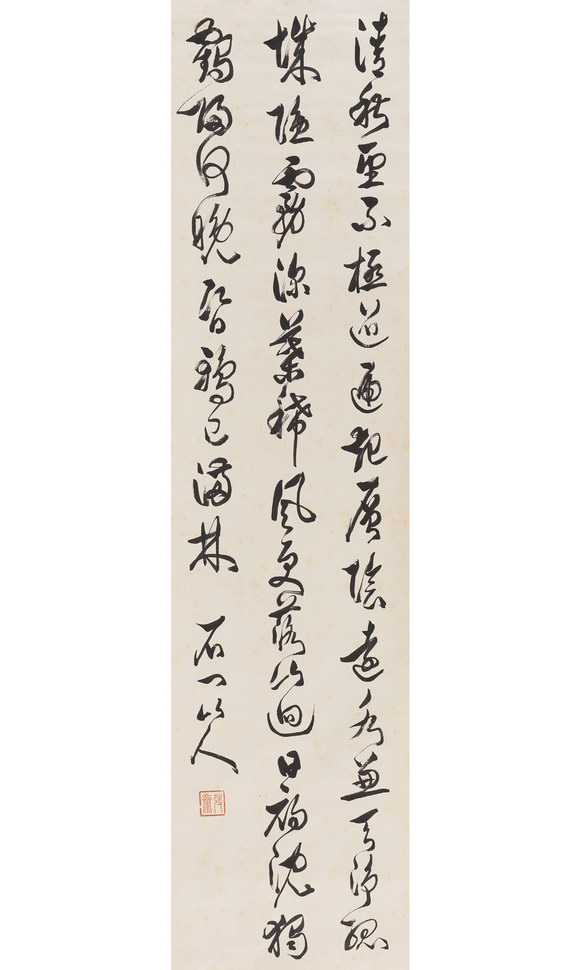 清秋望不極迢遞起層陰遠水兼天淨孤
城隱霧深葉稀風更落山迥日初沈獨
鶴歸何晚昏鴉已滿林 石門山人